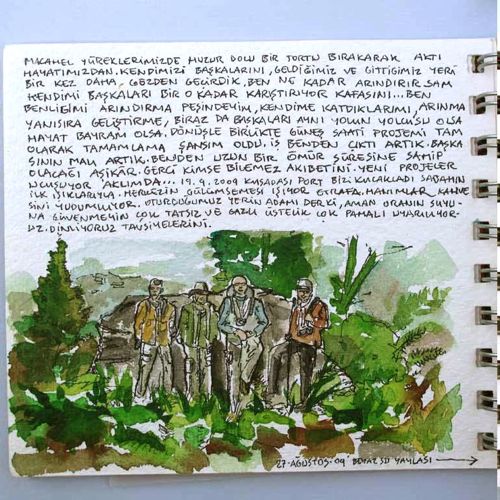 MACAHEL YÜREKLERİMİZDE HUZUR DOLU BİR TORTU BIRAKARAK AKTI
HAYATIMIZDAN. KENDİMİZİ BAŞKALARINI, GELDİĞİMİZ VE GİTTİĞİMİZ YERİ
BİR KEZ DAHA GEZDEN GEÇİRDİK. BEN NE KADAR ARINDIRIRSAM
KENDİMİ BAŞKALARI BİR O KADAR KARIŞTIRIYOR KAFASINI... BEN
BENLİĞİMİ ARINDIRMA PEŞİNDEYİM, KENDİME KATDIKLARIMI, ARINMA
YANISIRA GELİŞTİRME, BİRAZ DA BAŞKALARI AYNI YOLUN YOLCUSU OLSA
HAYAT BAYRAM OLSA. DÖNÜŞLE BİRLİKTE GÜNEŞ SAATİ PROJEMİ TAM
OLARAK TAMAMLAMA ŞANSIM OLDU. İŞ BENDEN ÇIKTI ARTIK. BAŞKA
SININ MALI ARTIK. BENDEN UZUN BİR ÖMÜR SÜRESİNE SAHİP
OLACAĞI AŞİKÂR. GERÇİ KİMSE BİLEMEZ AKIBETİNİ. YENİ PROJELER
UÇUŞUYOR AKLIMDA... 19.9.2009 KUŞADASI PORT BİZ KUCAKLADI SABAHIN
İLK IŞIKLARIYLA. HERKEZİN GÜLÜMSEMESİ IŞIYOR ETRAFA. HANIMLAR, KAHVE
SİNİ YUDUMLUYOR. OTURDUĞUMUZ YERİN ADAMI DERKİ, AMAN ORANIN SUYU-
NA GÜVENMEYİN ÇOK TATSIZ VE GAZLI ÜSTELİK ÇOK PAHALI UYARILIYOR-
UZ. DİNLİYORUZ TAVSİYELERİNİ.
27.AĞUSTOS.09 BEYAZSU YAYLASI